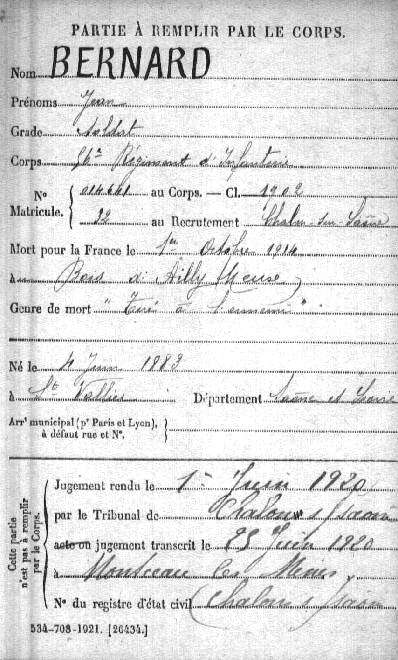 PARTIE À REMPLIR PAR LE CORPS.
Nom BERNARD
Prénoms Jean
Grade Soldat
Corps 56e Régiment d'Infanterie
N° Matricule. 014661 au Corps. — Cl. 1902
92 au Recrutement Chalon-sur-Saône
Mort pour la France le 1er Octobre 1914
à Bois d'Ailly Meuse
Genre de mort "Tué à l'ennemi"
Né le 4 Juin 1883
à St Vallier Département Saône et Loire
Arrt municipal (pr Paris et Lyon), à défaut rue et N°.
Cette partie n'est pas à remplir par le Corps.
Jugement rendu le 1er Juin 1920
par le Tribunal de Chalon s/ Saone
acte ou jugement transcrit le 25 Juin 1920
à Montceau les Mines
N° du registre d'état civil (Chalon s/ Saone
534-708-1921. [26434.]